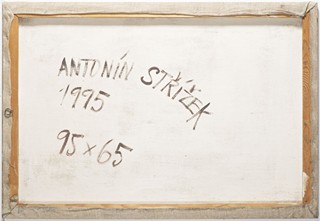 ANTONÍN STŘÍŽEK
1995
95 × 65